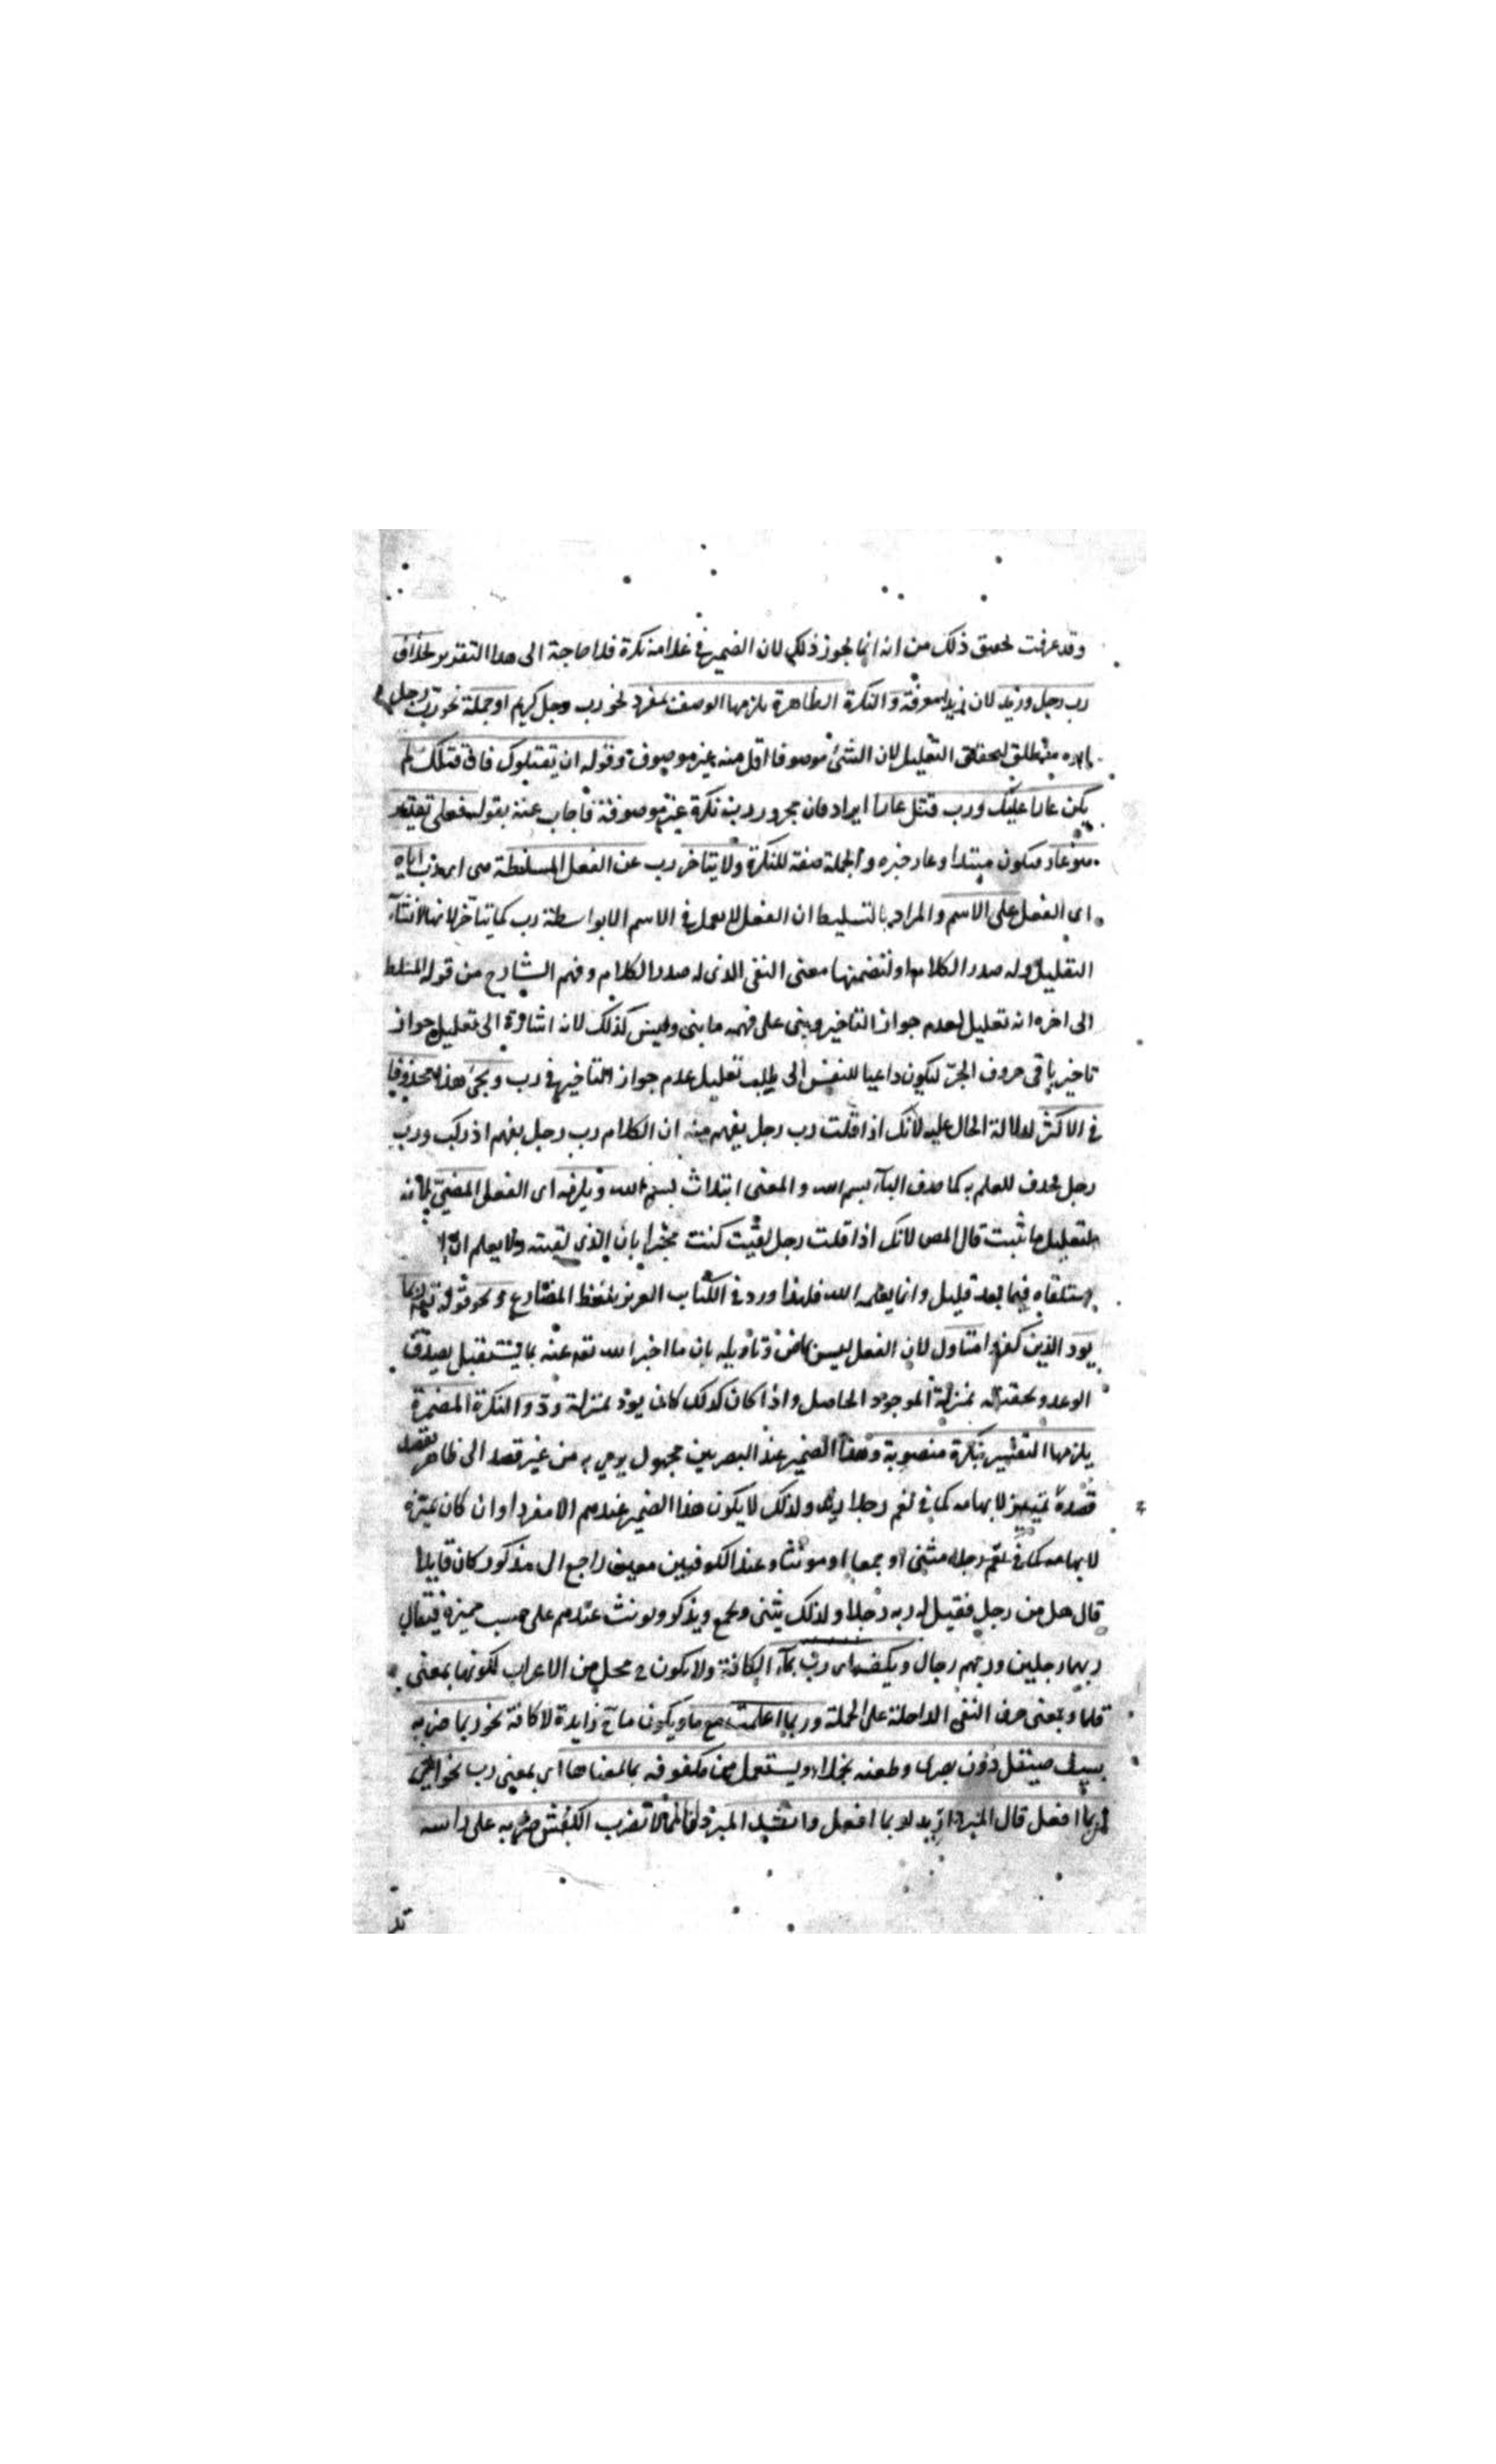 وقد عرفت تحقيق ذلك من انه انما يجوز ذلك لان الضمير في غلامه نكرة فلا حاجة الى هذا التقدير بخلاف
رب رجل وزيد لان زيد معرفة والنكرة الظاهرة يلزمها الوصف بمفرد نحو رب رجل كريم او جملة نحو رب رجل
ابوه منطلق ليحقق التقليل لان الشئ موصوفا اقل منه غير موصوف وقوله ان يقتلوك فان قتلك لم
يكن عارا عليك ورب قتل عار ايراد فان مجرور رب نكرة غير موصوفة فاجاب عنه بقوله فعلى تقدير
هو عار فيكون مبتدا وعار خبره والجملة صفة للنكرة ولا يتاخر رب عن الفعل المسلطة هى اى رب اياه
اى الفعل على الاسم والمراد بالتسليط ان الفعل لا يعمل في الاسم الا بواسطة رب كما يتاخر لانها لانشآء
التقليل وله صدر الكلام او لتضمنها معنى النفى الذى له صدر الكلام وفهم الشارح من قوله المسلط
الى اخره انه تعليل لعدم جواز التاخير وبنى على فهمه ما بنى وليس كذلك لانه اشارة الى تعليل جواز
تاخير باقى حروف الجر ليكون داعيا للنفس الى طلب تعليل عدم جواز التاخير في رب ويجئ هذا محذوفا
في الاكثر لدلالة الحال عليه لانك اذا قلت رب رجل يفهم منه ان الكلام رب رجل يفهم اذ ركب ورب
رجل يحذف للعلم به كما حذف البآء بسم الله والمعنى ابتدات بسم الله ويلزمه اى الفعل المضى لانه
لتقليل ما ثبت قال المص لانك اذا قلت رجل لقيت كنت مخبرا بان الذى لقيته ولا يعلم ان ما
ستلقاه فيما بعد قليل وانما يعلمه الله فلهذا ورد في الكتاب العزيز بلفظ المضارع ونحو قوله تعالى ربما
يود الذين كفروا متاول لان الفعل ليس بماض وتاويله بان ما اخبر الله تعه عنه بما يستقبل لصدق
الوعد وتحققه بمنزلة الموجود الحاصل واذا كان كذلك كان يود بمنزلة ود والنكرة المضمرة
يلزمها التفسير بنكرة منصوبة وهذا الضمير عند البصريين مجهول يرمى به من غير قصد الى ظاهر يقصد
قصده تمييز لابهامه كما في نعم رجلا زيد ولذلك لا يكون هذا الضمير عندهم الا مفردا وان كان مميزه
لابهامه كما في نعم رجلا مثنى او جمعا او مونثا وعند الكوفيين معين راجع الى مذكور كان قايلا
قال هل من رجل فقيل له ربه رجلا ولذلك يثنى ويجمع ويذكر ويونث عندهم على حسب مميزه فيقال
ربهما رجلين وربهم رجال ويكف اى رب بمآء الكافة ولا يكون له محل من الاعراب لكونها بمعنى
قلما وبمعنى حرف النفى الداخلة على الجملة وربما اعلمت مع ما ويكون مآ زايدة لا كافة نحو ربما ضربه
بسيف صيقل دون بصرى وطعنه نجلاء ويستعمل مكفوفه بما لمعناها اى بمعنى رب نحو انى
لربما افعل قال المبرد ازيد لو بما افعل وانشد المبرد تضرب الكبش ضربه على راسه